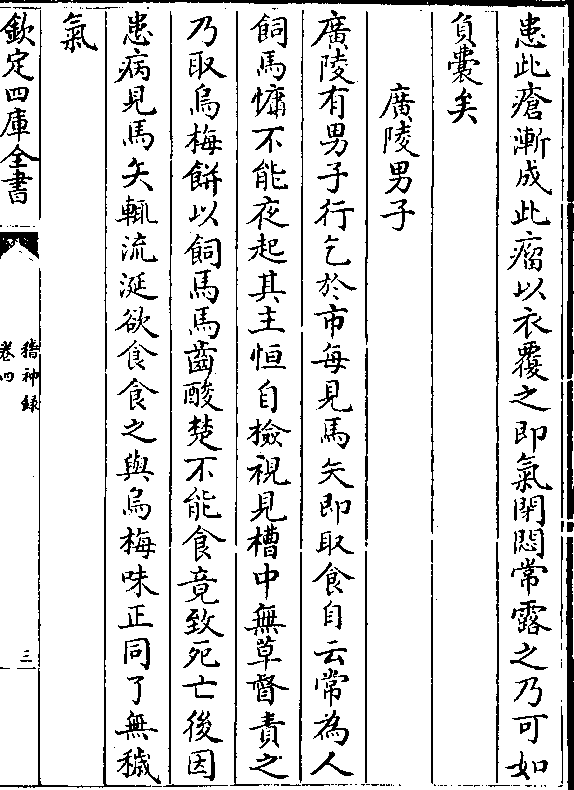 患此瘡漸成此瘤以衣覆之即氣閉悶常露之乃可如
負囊矣
廣陵男子
廣陵有男子行乞於市每見馬矢即取食自云常為人
飼馬慵不能夜起其主恒自檢視見槽中無草督責之
乃取烏梅餅以飼馬馬齒酸楚不能食竟致死亡後因
患病見馬矢輒流涎欲食食之與烏梅味正同了無穢
氣
欽定四庫全書
稽神録
卷四
三